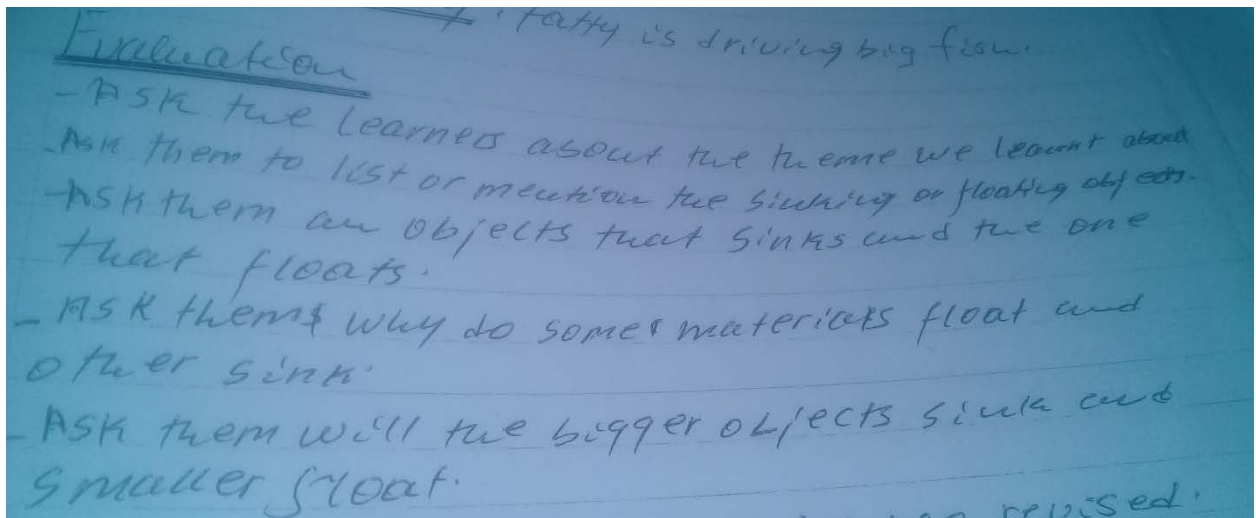 : Fatty is driving big fish.
Evaluation
- Ask the learners about the theme we learnt about
- Ask them to list or mention the sinking or floating objects.
- Ask them an objects that sinks and the one
that floats.
- Ask them why do some materials float and
other sink.
- Ask them will the bigger objects sink and
smaller float.
revised.